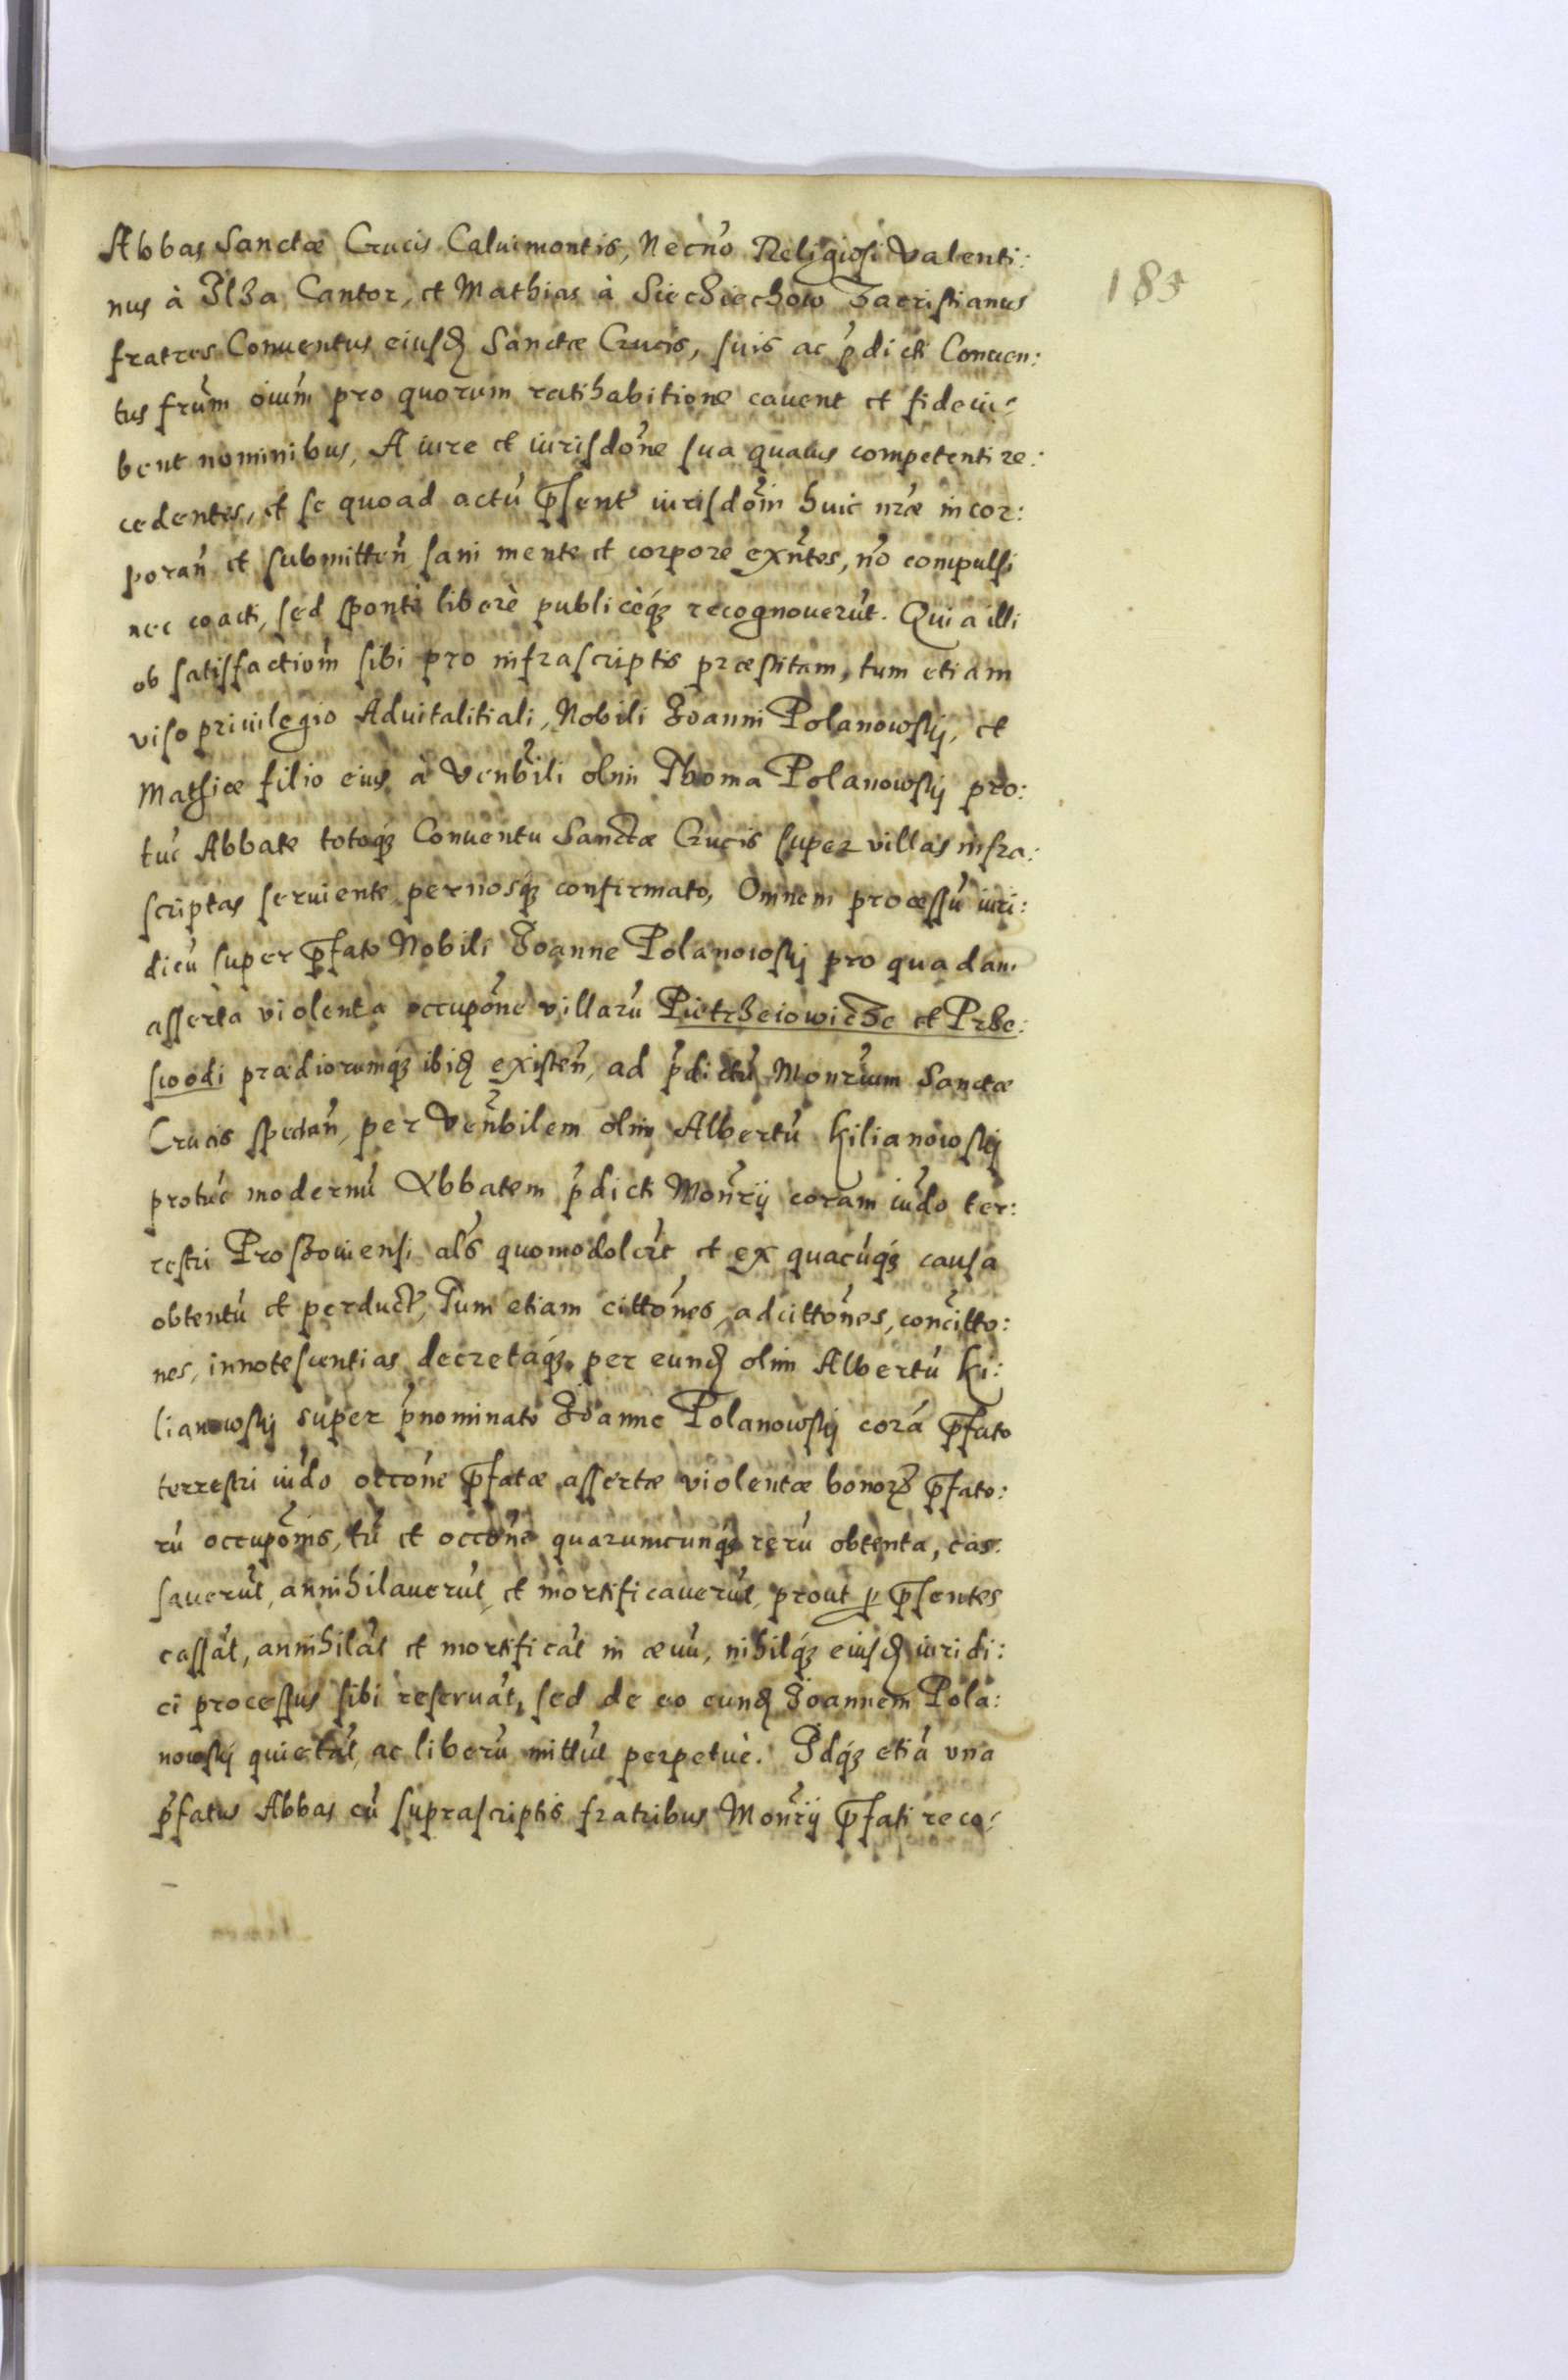 Abbas Sanctæ Crucis Caluimontis, Necno Religiosi Valenti:
nus à Ilza Cantor, et Mathias à Sieciechow Sacristianus
fratres Conuentus eiusd Sanctæ Crucis, suis ac pdicti Conuen:
tus frum oium pro quorum ratihabitione cauent et fideiu:
bent nominibus, A iure et iurisdone sua quauis competenti re:
cedentes, et se quoad actu psent iurisdoin huic nræ incor:
poran et submitten sani mente et corpore exntes, no compulsi
nec coacti, sed sponte liberè publicèq recognouerut. Quia illi
ob satisfactiom sibi pro infrascriptis præstitam, tum etiam
viso priuilegio Aduitalitiali, Nobili Joanni Polanowskij, et
Mathiæ filio eius à Venbili olim Thoma Polanowskij pro:
tuc Abbate totoq Conuentu Sanctæ Crucis super villas infra:
scriptas seruiente, per nosq confirmato, Omnem processu iuri:
dicu super pfato Nobili Joanne Polanowskij pro quadam
asserta violenta occupone villaru Pietrzeiowicze et Prze:
swodi prædiorumq ibid existen, ad pdictu Monrium Sanctæ
Crucis spectan, per Venbilem olim Albertu Kilianowskij
protuc modernu Abbatem pdicti Monrij coram iudo ter:
restri Proszouiensi als quomodolibt et ex quacuq causa
obtentu et perduct, Tum etiam cittones, adcittones, concitto:
nes, innotescentias decretaq per eund olim Albertu Ki:
lianowskij super pnominato Joanne Polanowskij cora pfato
terrestri iudo occone pfatæ assertæ violentæ bonor pfato:
ru occupoins, tu et occone quarumcunq reru obtenta, cas:
sauerut, annihilauerut, et mortificauerut, prout p psentes
cassat, annihilat et mortificat in æuu, nihilq eiusd iuridi:
ci processus sibi reseruat, sed de eo eund Joannem Pola:
nowskij quietat, ac liberu mittut perpetuè. Idq etia vna
pfatus Abbas cu suprascriptis fratribus Monrij pfati reco: